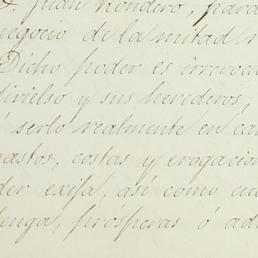 D. Juan Rondero, para
negocio de la mitad
Dicho poder es irrevoca
divielso y sus herederos,
á serlo realmente en ca
gastos, costas y erogacion
der exija, así como cu
tenga, prósperas ó ad